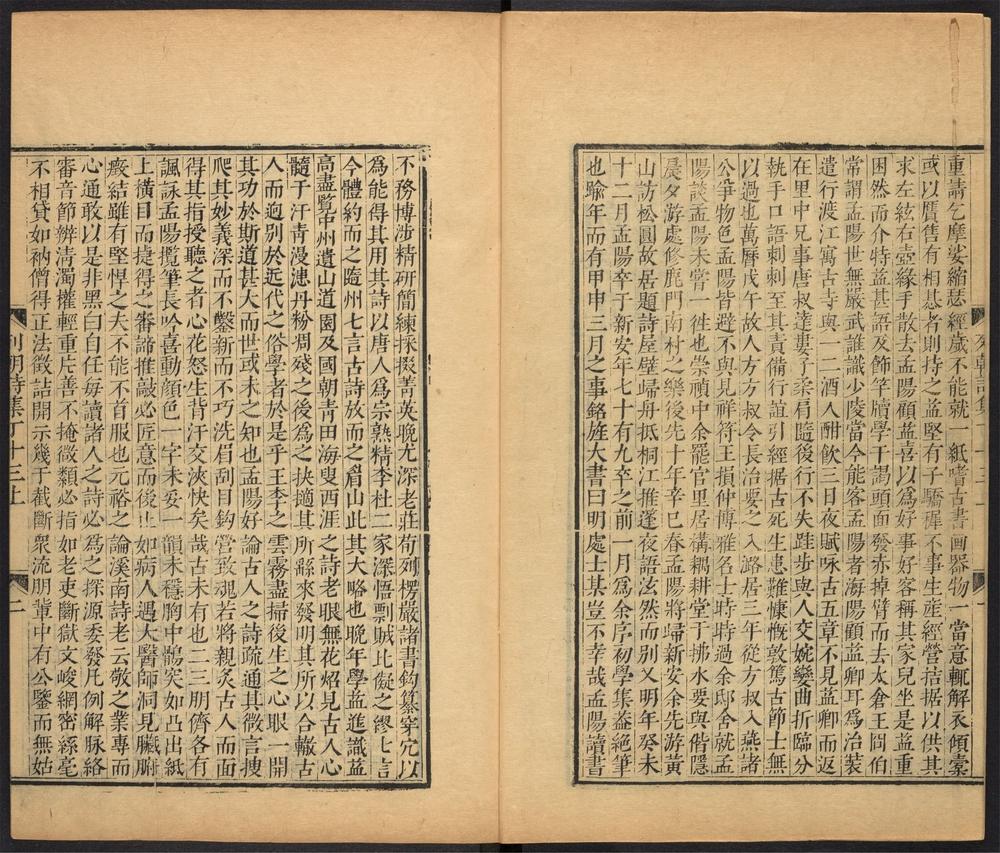 重請乞摩娑縮瑟經歲不能就一紙嗜古書画器物一當意輒解衣傾橐
或以贋售有相惎者則持之益堅有子驕穉不事生産經營拮据以供其
求左絃右壺緣手散去孟陽顧益喜以爲好事好客稱其家兒坐是益重
困然而介特益甚語及飾竿牘學干謁頭面發赤掉臂而去太倉王冏伯
常謂孟陽世無嚴武誰識少陵當今能客孟陽者海陽顧益卿耳爲治裝
遣行渡江寓古寺與一二酒人酣飲三日夜賦咏古五章不見益卿而返
在里中兄事唐叔達婁子柔肩隨後行不失跬步與人交婉孌曲折臨分
執手口語刺刺至其責備行誼引經據古死生患難慷慨敦篤古節士無
以過也萬曆戊午故人方方叔令長治要之入潞居三年從方叔入燕諸
公爭物色孟陽皆避不與見祥符王損仲博雅名士時時過余邸舍就孟
陽談孟陽未嘗一徃也崇禎中余罷官里居構耦耕堂于拂水要與偕隱
晨夕游處修鹿門南村之樂後先十年辛巳春孟陽將歸新安余先游黃
山訪松圓故居題詩屋壁歸舟抵桐江推篷夜語泫然而別又明年癸未
十二月孟陽卒于新安年七十有九卒之前一月爲余序初學集葢絕筆
也踰年而有甲申三月之事銘旌大書曰明處士其豈不幸哉孟陽讀書
不務博涉精研簡練採掇菁英晚尤深老莊荀列楞嚴諸書鈎纂穿穴以
爲能得其用其詩以唐人爲宗熟精李杜二家深悟剽賊比儗之繆七言
今體約而之隨州七言古詩放而之眉山此其大略也晚年學益進識益
高盡覽中州遺山道園及國朝青田海叟西涯之詩老眼無花炤見古人心
髓于汗青漫漶丹粉凋殘之後爲之抉擿其所繇來發明其所以合轍古
人而迥別於近代之俗學者於是乎王李之雲霧盡掃後生之心眼一開
其功於斯道甚大而世或未之知也孟陽好論古人之詩疏通其微言搜
爬其妙義深而不鑿新而不巧洗眉刮目鈎營致魂若將親炙古人而面
得其指授聽之者心花怒生背汗交浹快矣哉古未有也二三朋儕各有
諷詠孟陽攬筆長吟喜動顏色一字未妥一韻未穩胸中鶻突如凸出紙
上橫目而捷得之審諦推敲必匠意而後止如病人遇大醫師洞見臟腑
癥結雖有堅悍之夫不能不首服也元裕之論溪南詩老云敬之業專而
心通敢以是非黑白自任每讀諸人之詩必爲之探源委發凡例解脉絡
審音節辨清濁權輕重片善不掩微類必指如老吏斷獄文峻網密絲毫
不相貸如衲僧得正法徵詰開示幾于截斷衆流朋輩中有公鑒而無姑
列朝詩集丁十三上
二